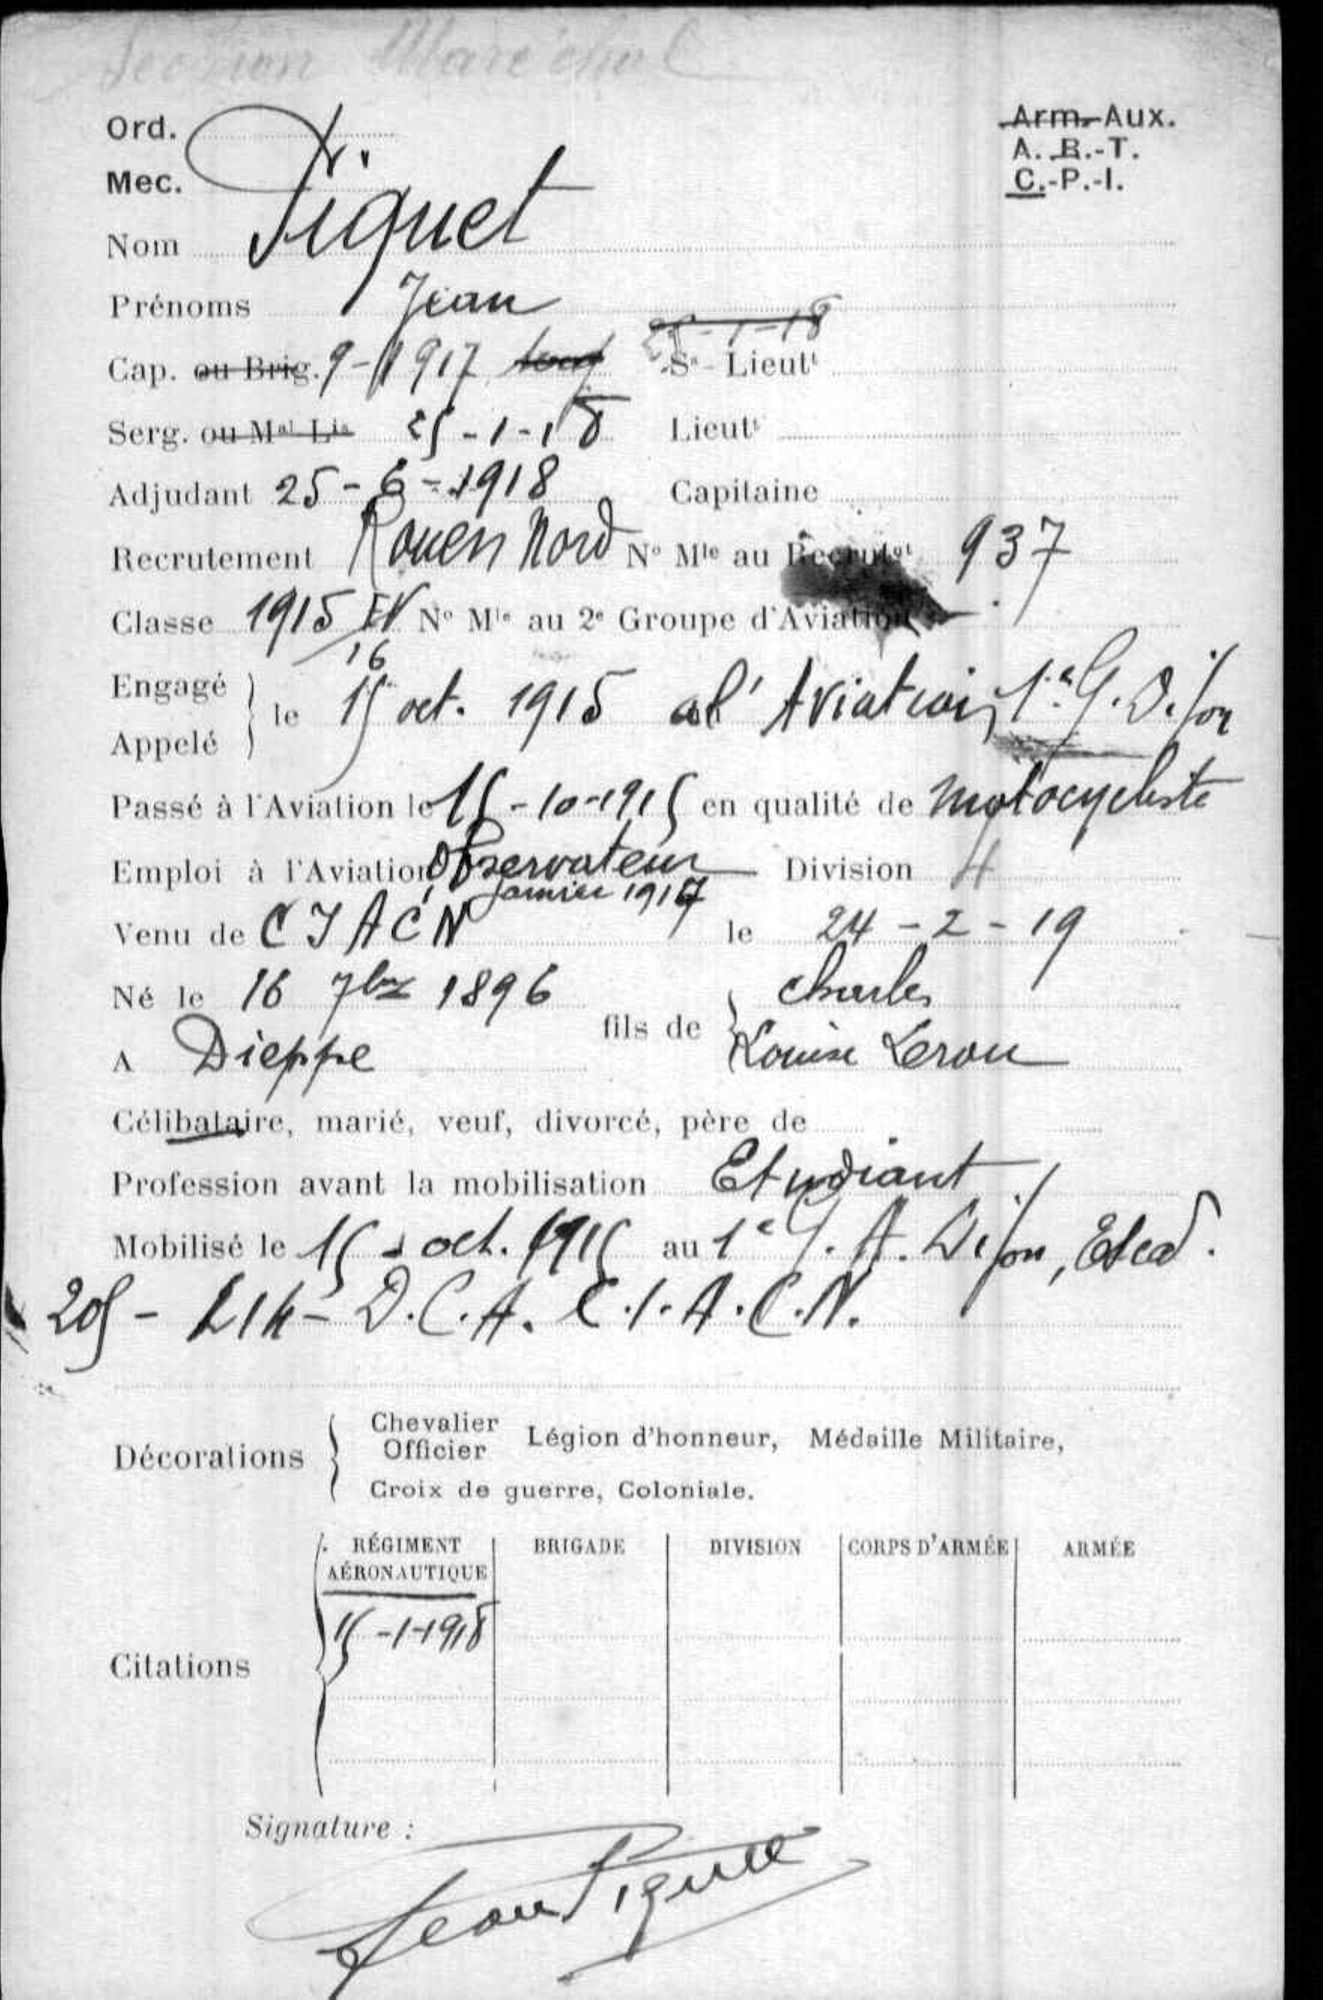 Section Maréchal
Ord.
Arm.-Aux.
A.-R.-T.
Mec.
C.-P.-I.
Nom Piquet
Prénoms Jean
25-1-18
Cap. ou Brig. 9-1917 S.-Lieutt
Serg. ou Mal Lis 25-1-18 Lieutt
Adjudant 25-6-1918 Capitaine
Recrutement Rouen Nord No Mle au Recrutet 937
Classe 1915 EV No Mle au 2e Groupe d'Aviation
16
Engagé
le 15 oct. 1915 à l'Aviation 1er G. Dijon
Appelé
Passé à l'Aviation le 15-10-1915 en qualité de motocycliste
Emploi à l'Aviation Observateur Division 4
janvier 1917
Venu de CIACN le 24-2-19
Né le 16 7bre 1896 Charles
fils de
A Dieppe Louise Lerou
Célibataire, marié, veuf, divorcé, père de
Profession avant la mobilisation Etudiant
Mobilisé le 15 oct. 1915 au 1e G. A. Dijon, Escad.
205 - 214 - D.C.A. C.I.A.C.N.
Chevalier
Officier Légion d'honneur, Médaille Militaire,
Décorations
Croix de guerre, Coloniale.
RÉGIMENT AÉRONAUTIQUE BRIGADE DIVISION CORPS D'ARMÉE ARMÉE
15-1-1918
Citations
Signature :
Jean Piquet